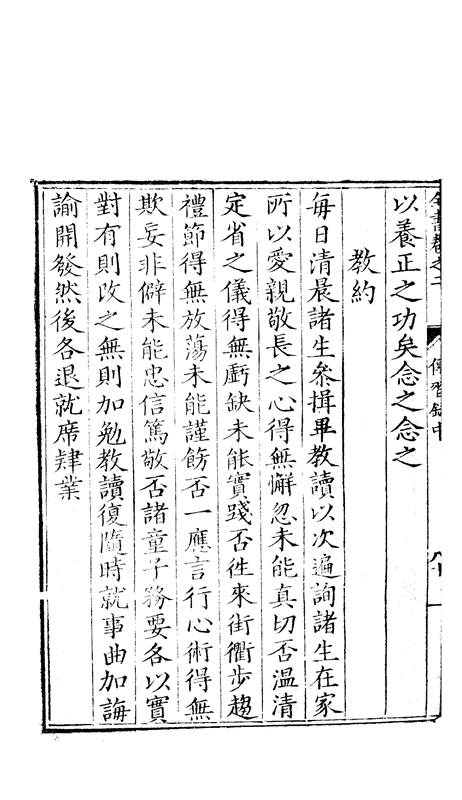 全書卷之二 傳習錄中
以養正之功矣念之念之
教約
每日清晨諸生叅揖畢教讀以次遍詢諸生在家
所以愛親敬長之心得無懈忽未能真切否温清
定省之儀得無虧缺未能實踐否徃來街衢步趨
禮節得無放蕩未能謹飭否一應言行心術得無
欺妄非僻未能忠信篤敬否諸童子務要各以實
對有則改之無則加勉教讀復隨時就事曲加誨
諭開發然後各退就席肄業